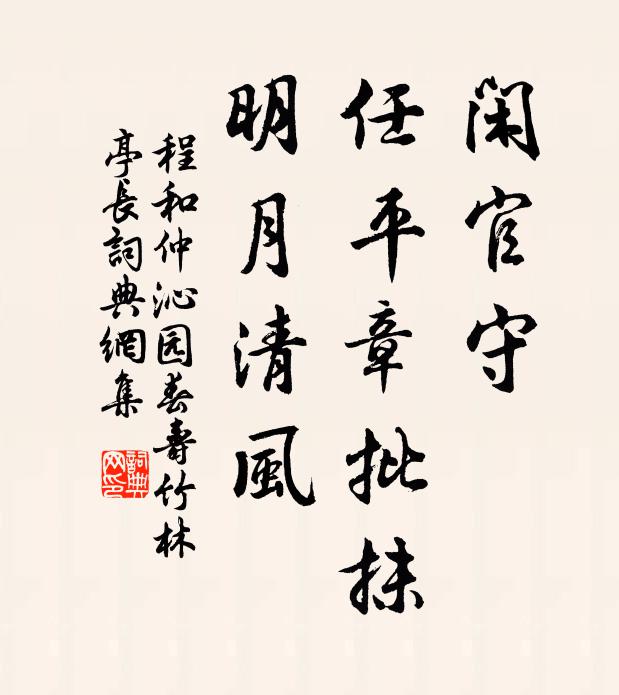 閑官守
任平章批抹
明月清風
程和仲沁园春壽竹林
亭長詞典網集
詞典網印